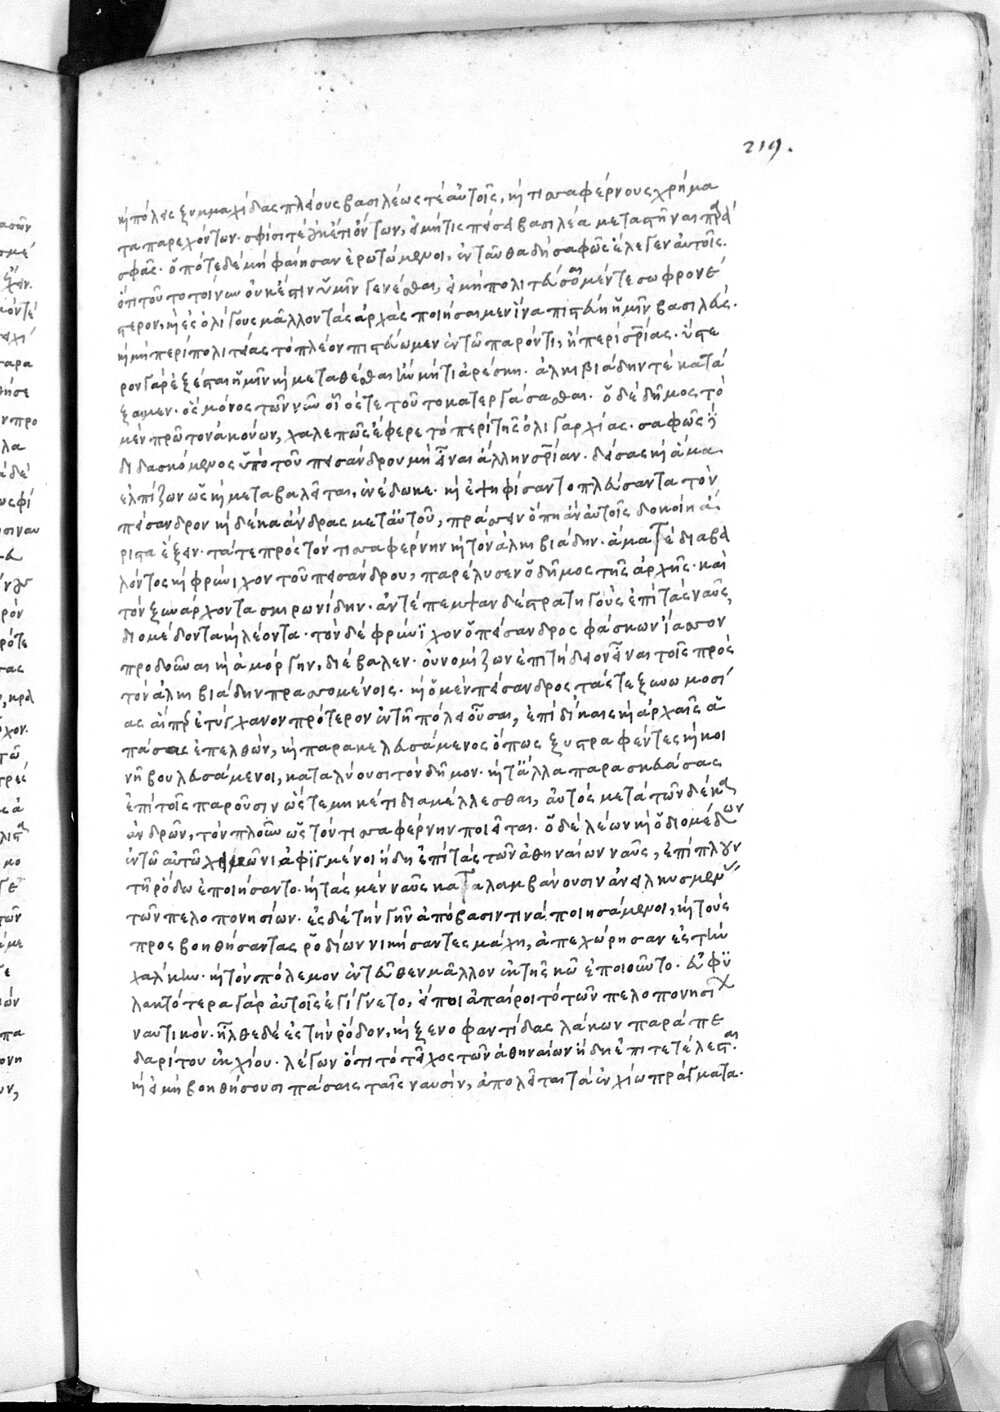 καὶ πόλεις ξυμμαχίδας πλείους βασιλέως τε αὐτοῖς, καὶ τισσαφέρνους χρήμα
τα παρεχόντων. σφίσι τε οὐκέτι ὄντων, εἰ μήτις πείσει βασιλέα μεταστῆναι παρὰ
σφᾶς. ὁπότε δὲ μὴ φαίησαν ἐρωτώμενοι, ἐνταῦθα δὴ σαφῶς ἔλεγεν αὐτοῖς.
ὅτι τοῦτο τοίνυν οὐκ ἔστιν ὑμῖν γενέσθαι, εἰ μὴ πολιτεύσομέν τε σωφρονέ
στερον, καὶ ἐς ὀλίγους μᾶλλον τὰς ἀρχὰς ποιήσαιμεν ἵνα πιστεύη ἡμῖν βασιλεύς.
καὶ μὴ περὶ πολιτείας τὸ πλέον πιστεύωμεν ἐν τῶ παρόντι, ἢ περὶ σωτηρίας. ὕστε
ρον γὰρ ἐξέσται ἡμῖν καὶ μεταθέσθαι ἢν μή τι ἀρέσκη. ἀλκιβιάδην τὲ κατά
ξαιμεν. ὃς μόνος τῶν νῦν οἷός τε τοῦτο κατεργάσασθαι. ὁ δὲ δῆμος τὸ
μὲν πρῶτον ἀκούων, χαλεπῶς ἔφερε τὸ περὶ τῆς ὀλιγαρχίας. σαφῶς δὲ
διδασκόμενος ὑπὸ τοῦ πεισάνδρου μὴ εἶναι ἄλλην σωτηρίαν. δείσας καὶ ἅμα
ἐλπίζων ὡς καὶ μεταβαλεῖται, ἐνέδωκε. καὶ ἐψηφίσαντο πλεύσαντα τὸν
πείσανδρον καὶ δέκα ἄνδρας μετ αὐτοῦ, πράσσειν ὅπη ἂν αὐτοῖς δοκοίη ἄ
ριστα ἕξειν. τά τε πρὸς τὸν τισσαφέρνην καὶ τὸν ἀλκιβιάδην. ἅμα τὲ διαβα
λόντος καὶ φρύνιχον τοῦ πεισάνδρου, παρέλυσεν ὁ δῆμος τῆς ἀρχῆς. καὶ
τὸν ξυνάρχοντα σκιρωνίδην. ἀντέπεμψαν δὲ στρατηγοὺς ἐπὶ τὰς ναῦς,
διομέδοντα καὶ λέοντα. τὸν δὲ φρύνιχον ὁ πείσανδρος φάσκων ἴασσον
προδοῦναι καὶ ἀμόργην, διέβαλεν. οὐ νομίζων ἐπιτήδειον εἶναι τοῖς πρὸς
τὸν ἀλκιβιάδην πρασσομένοις. καὶ ὁ μὲν πείσανδρος τάς τε ξυνωμοσί
ας αἵπερ ἐτύγχανον πρότερον ἐν τῆ πόλει οὖσαι, ἐπὶ δίκαις καὶ ἀρχαῖς ἁ
πάσας ἐπελθὼν, καὶ παρακελευσάμενος ὅπως ξυστραφέντες καὶ κοι
νῆ βουλευσάμενοι, καταλύουσι τὸν δῆμον. καὶ τἄλλα παρασκευάσας
ἐπὶ τοῖς παροῦσιν ὥστε μηκέτι διαμέλλεσθαι, αὐτὸς μετὰ τῶν δέκα
ἀνδρῶν, τὸν πλοῦν ὡς τὸν τισσαφέρνην ποιεῖται. ὁ δὲ λέων καὶ ὁ διομέδων
ἐν τῶ αὐτῶ χειμῶνι ἀφιγμένοι ἤδη ἐπὶ τὰς τῶν ἀθηναίων ναῦς, ἐπίπλουν
τῆ ῥόδω ἐποιήσαντο. καὶ τὰς μὲν ναῦς καταλαμβάνουσιν ἀνειλκυσμένας
τῶν πελοπονησίων. ἐς δὲ τὴν γῆν ἀπόβασίν τινα ποιησάμενοι, καὶ τοὺς
προσβοηθήσαντας ῥοδίων νικήσαντες μάχη, ἀπεχώρησαν ἐς τὴν
χάλκην. καὶ τὸν πόλεμον ἐντεῦθεν μᾶλλον ἐκ τῆς κῶ ἐποιοῦντο. εὐφυ
λακτότερα γὰρ αὐτοῖς ἐγίγνετο, εἴ ποι ἀπαίροι τὸ τῶν πελοπονησίων
ναυτικόν. ἦλθε δὲ ἐς τὴν ῥόδον, καὶ ξενοφαντίδας λάκων παρὰ πε
δαρίτου ἐκ χίου. λέγων ὅτι τὸ τεῖχος τῶν ἀθηναίων ἤδη ἐπιτετέλεσται.
καὶ εἰ μὴ βοηθήσουσι πάσαις ταῖς ναυσὶν, ἀπολεῖται τὰ ἐν χίω πράγματα.
219.